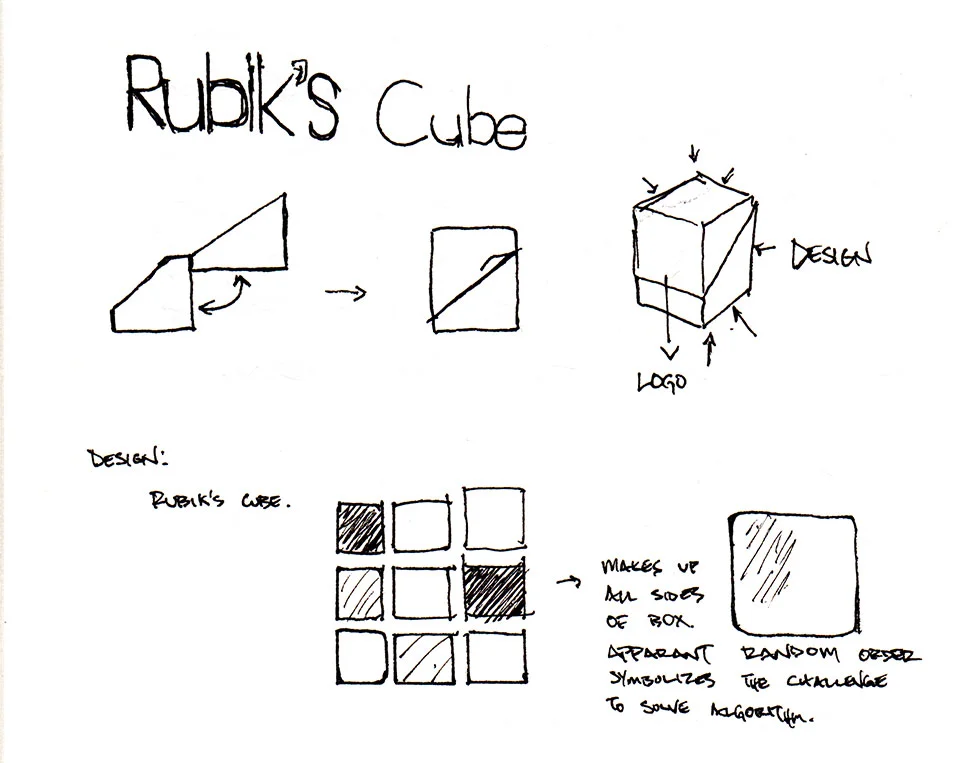 Rubik's Cube
DESIGN
LOGO
DESIGN:
RUBIK'S CUBE.
MAKES UP
ALL SIDES
OF BOX.
APPARANT RANDOM ORDER
SYMBOLIZES THE CHALLENGE
TO SOLVE ALGORITHM.